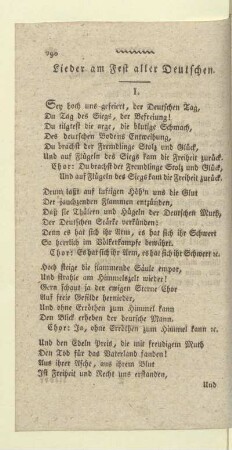 290
Lieder am Fest aller Deutschen.
I.
Sey hoch uns gefeiert, der Deutschen Tag,
Du Tag des Siegs, der Befreiung!
Du tilgtest die arge, die blutige Schmach,
Des deutschen Bodens Entweihung,
Du brachst der Fremdlinge Stolz und Glück,
Und auf Flügeln des Siegs kam die Freiheit zurück.
Chor: Du brachst der Fremdlinge Stolz und Glück,
Und auf Flügeln des Siegs kam die Freiheit zurück.
Drum laßt auf luftigen Höh'n uns die Glut
Der jauchzenden Flammen entzünden,
Daß sie Thälern und Hügeln der Deutschen Muth,
Der Deutschen Stärke verkünden:
Denn es hat sich ihr Arm, es hat sich ihr Schwert
So herrlich im Völkerkampfe bewährt.
Chor: Es hat sich ihr Arm, es hat sich ihr Schwert ꝛc.
Hoch steige die flammende Säule empor,
Und strahle am Himmelszelt wieder!
Gern schaut ja der ewigen Sterne Chor
Auf freie Gefilde hernieder,
Und ohne Erröthen zum Himmel kann
Den Blick erheben der deutsche Mann.
Chor: Ja, ohne Erröthen zum Himmel kann ꝛc.
Und den Edeln Preis, die mit freudigem Muth
Den Tod für das Vaterland fanden!
Aus ihrer Asche, aus ihrem Blut
Ist Freiheit und Recht uns erstanden,
Und